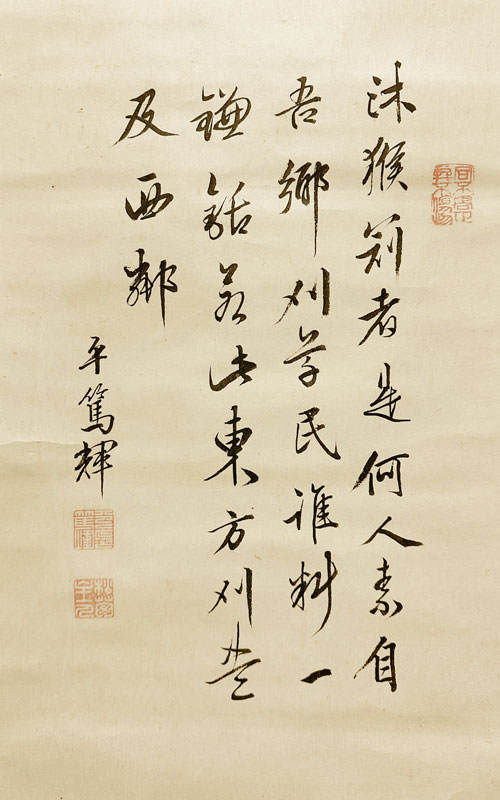 沐猴冠者是何人素自
吾鄉刈草民誰料一
鎌銛若此東方刈尽
及西鄰
平篤輝